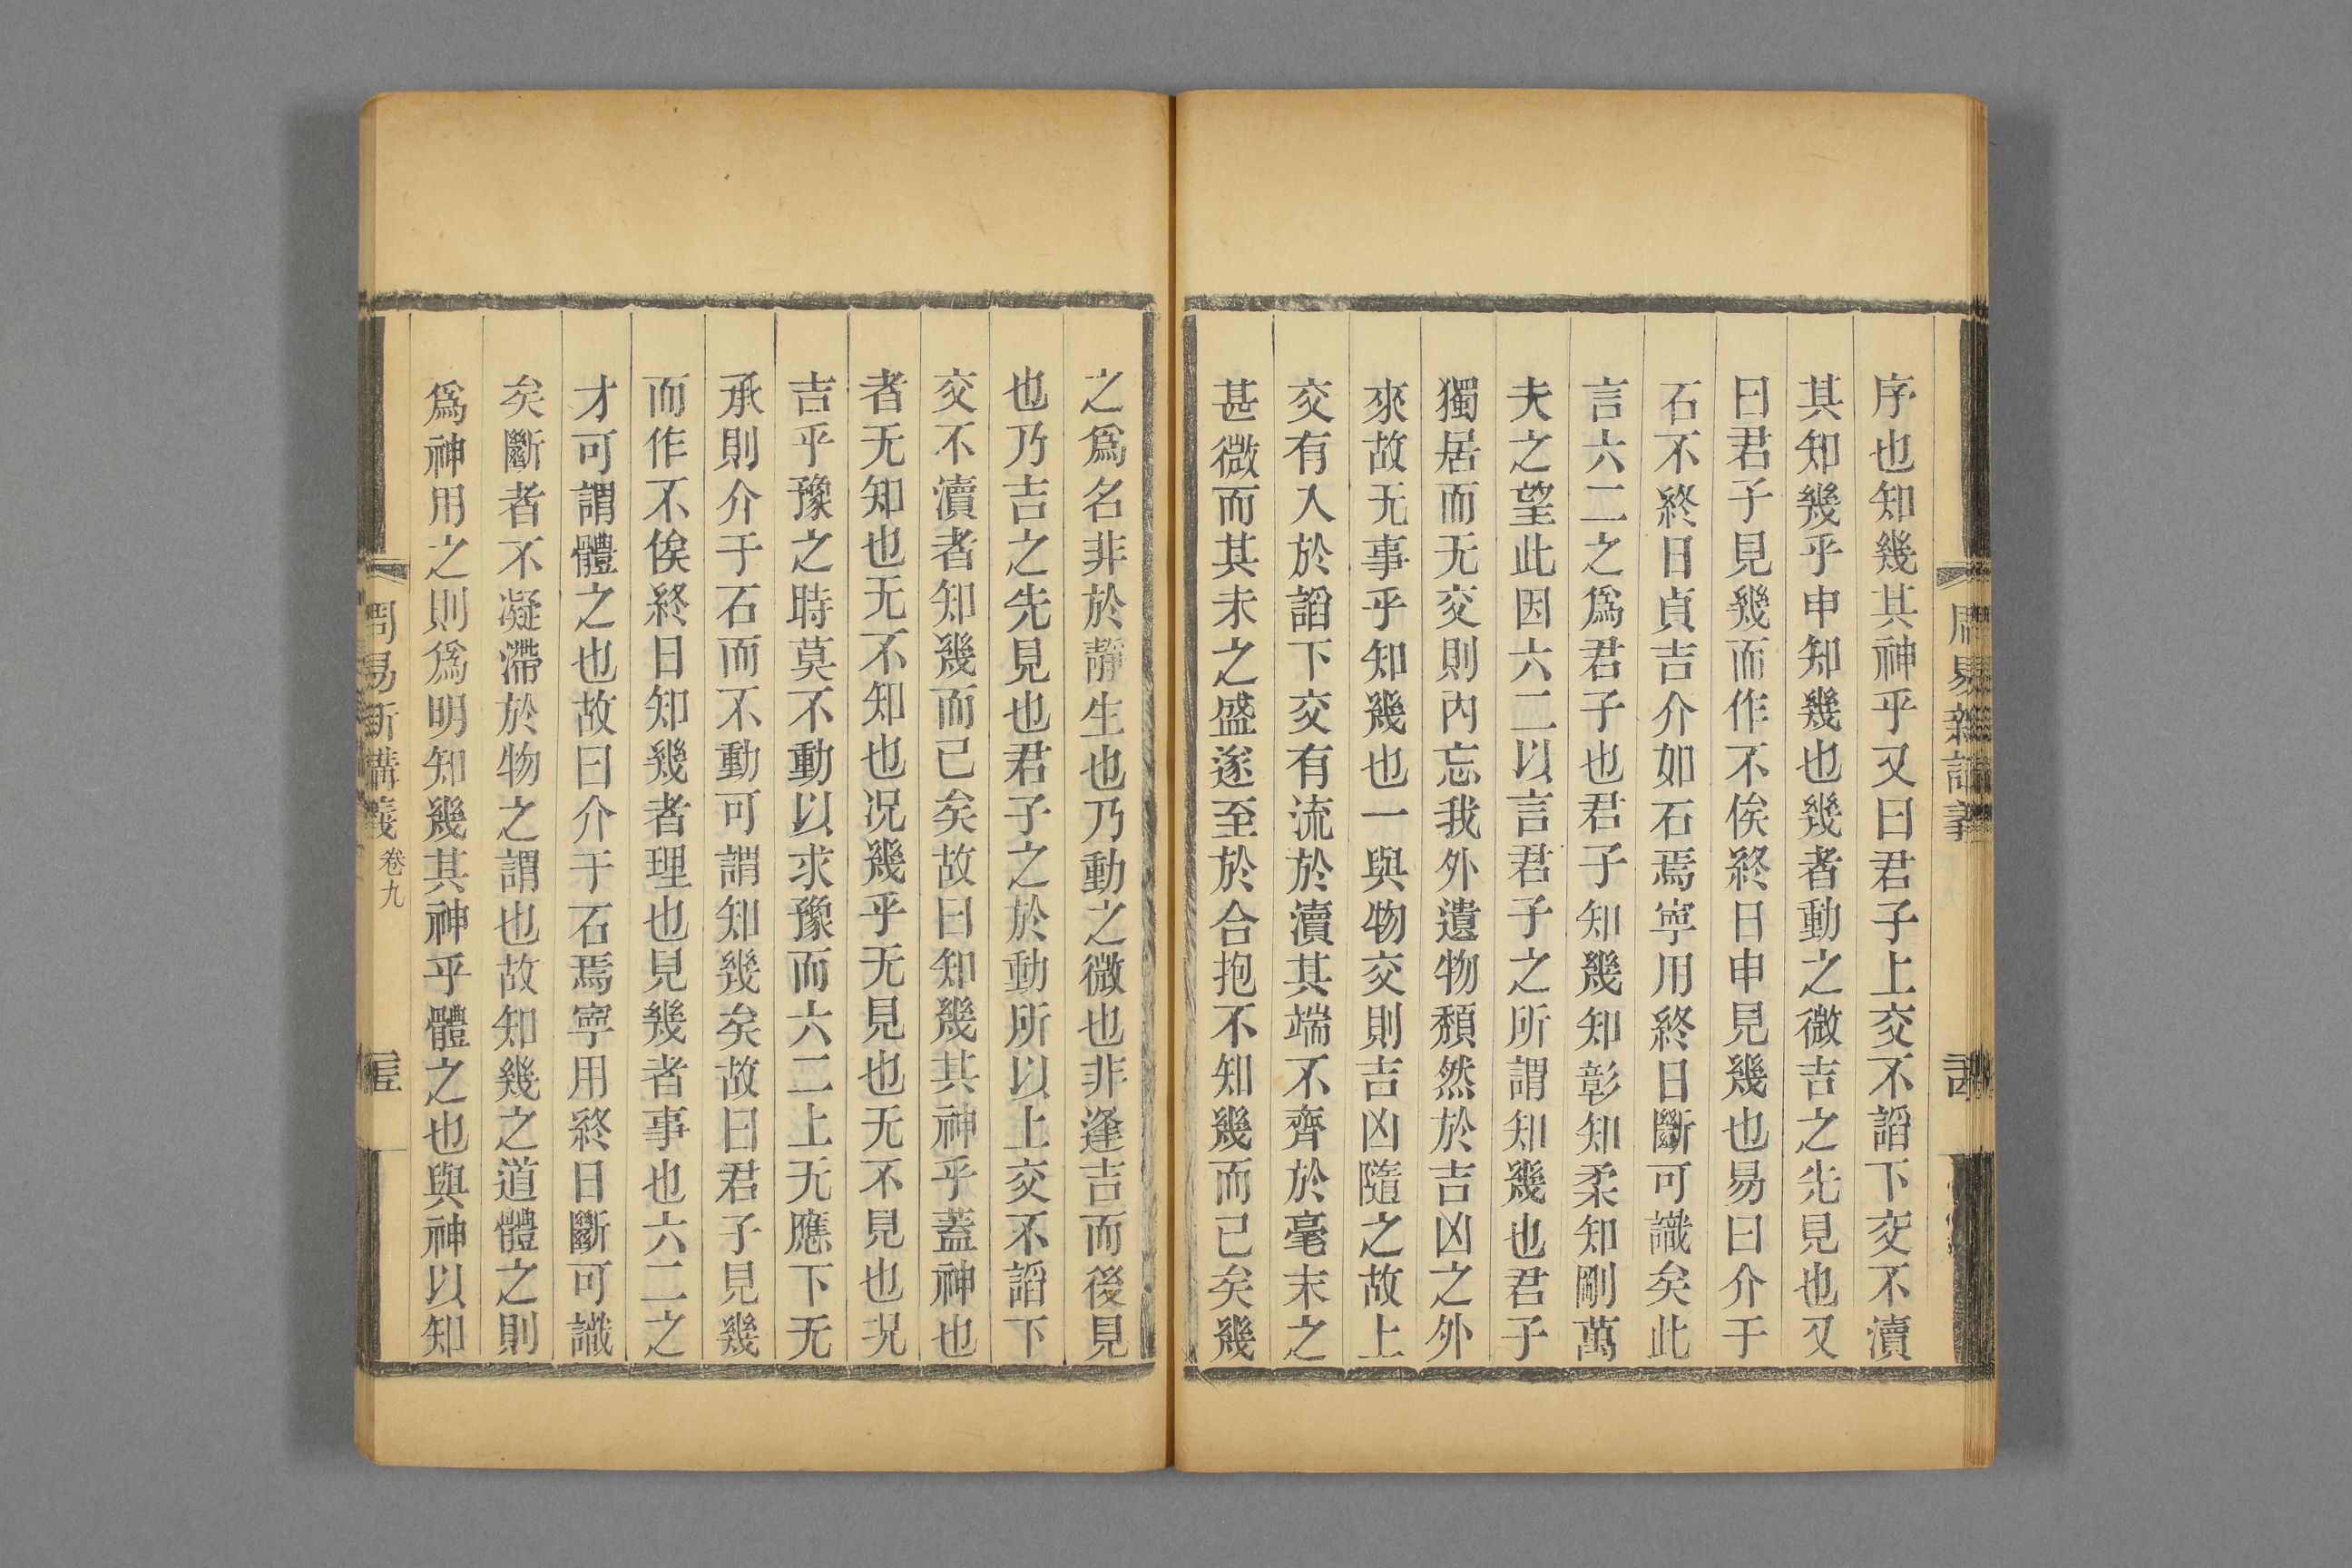 序也知幾其神乎又曰君子上交不諂下交不瀆
其知幾乎申知幾也幾者動之微吉之先見也又
曰君子見幾而作不俟終日申見幾也易曰介于
石不終日貞吉介如石焉寧用終日斷可識矣此
言六二之爲君子也君子知幾知彰知柔知剛萬
夫之望此因六二以言君子之所謂知幾也君子
獨居而无交則內忘我外遺物頽然於吉凶之外
來故无事乎知幾也一與物交則吉凶隨之故上
交有入於諂下交有流於瀆其端不齊於毫末之
甚微而其未之盛遂至於合抱不知幾而已矣幾
之爲名非於靜生也乃動之微也非逢吉而後見
也乃吉之先見也君子之於動所以上交不諂下
交不瀆者知幾而已矣故曰知幾其神乎蓋神也
者无知也无不知也况幾乎无見也无不見也况
吉乎豫之時莫不動以求豫而六二上无應下无
承則介于石而不動可謂知幾矣故曰君子見幾
而作不俟終日知幾者理也見幾者事也六二之
才可謂體之也故曰介于石焉寧用終日斷可識
矣斷者不凝滯於物之謂也故知幾之道體之則
爲神用之則爲明知幾其神乎體之也與神以知
周易新講義 卷九